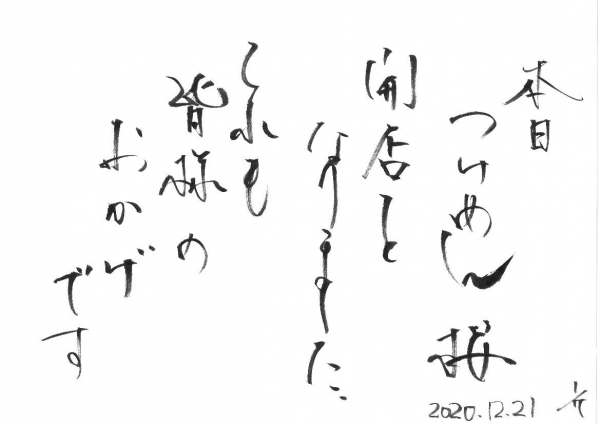 本日
つけめん 桜
開店と
なりました
これも
皆様の
おかげ
です
2020.12.21